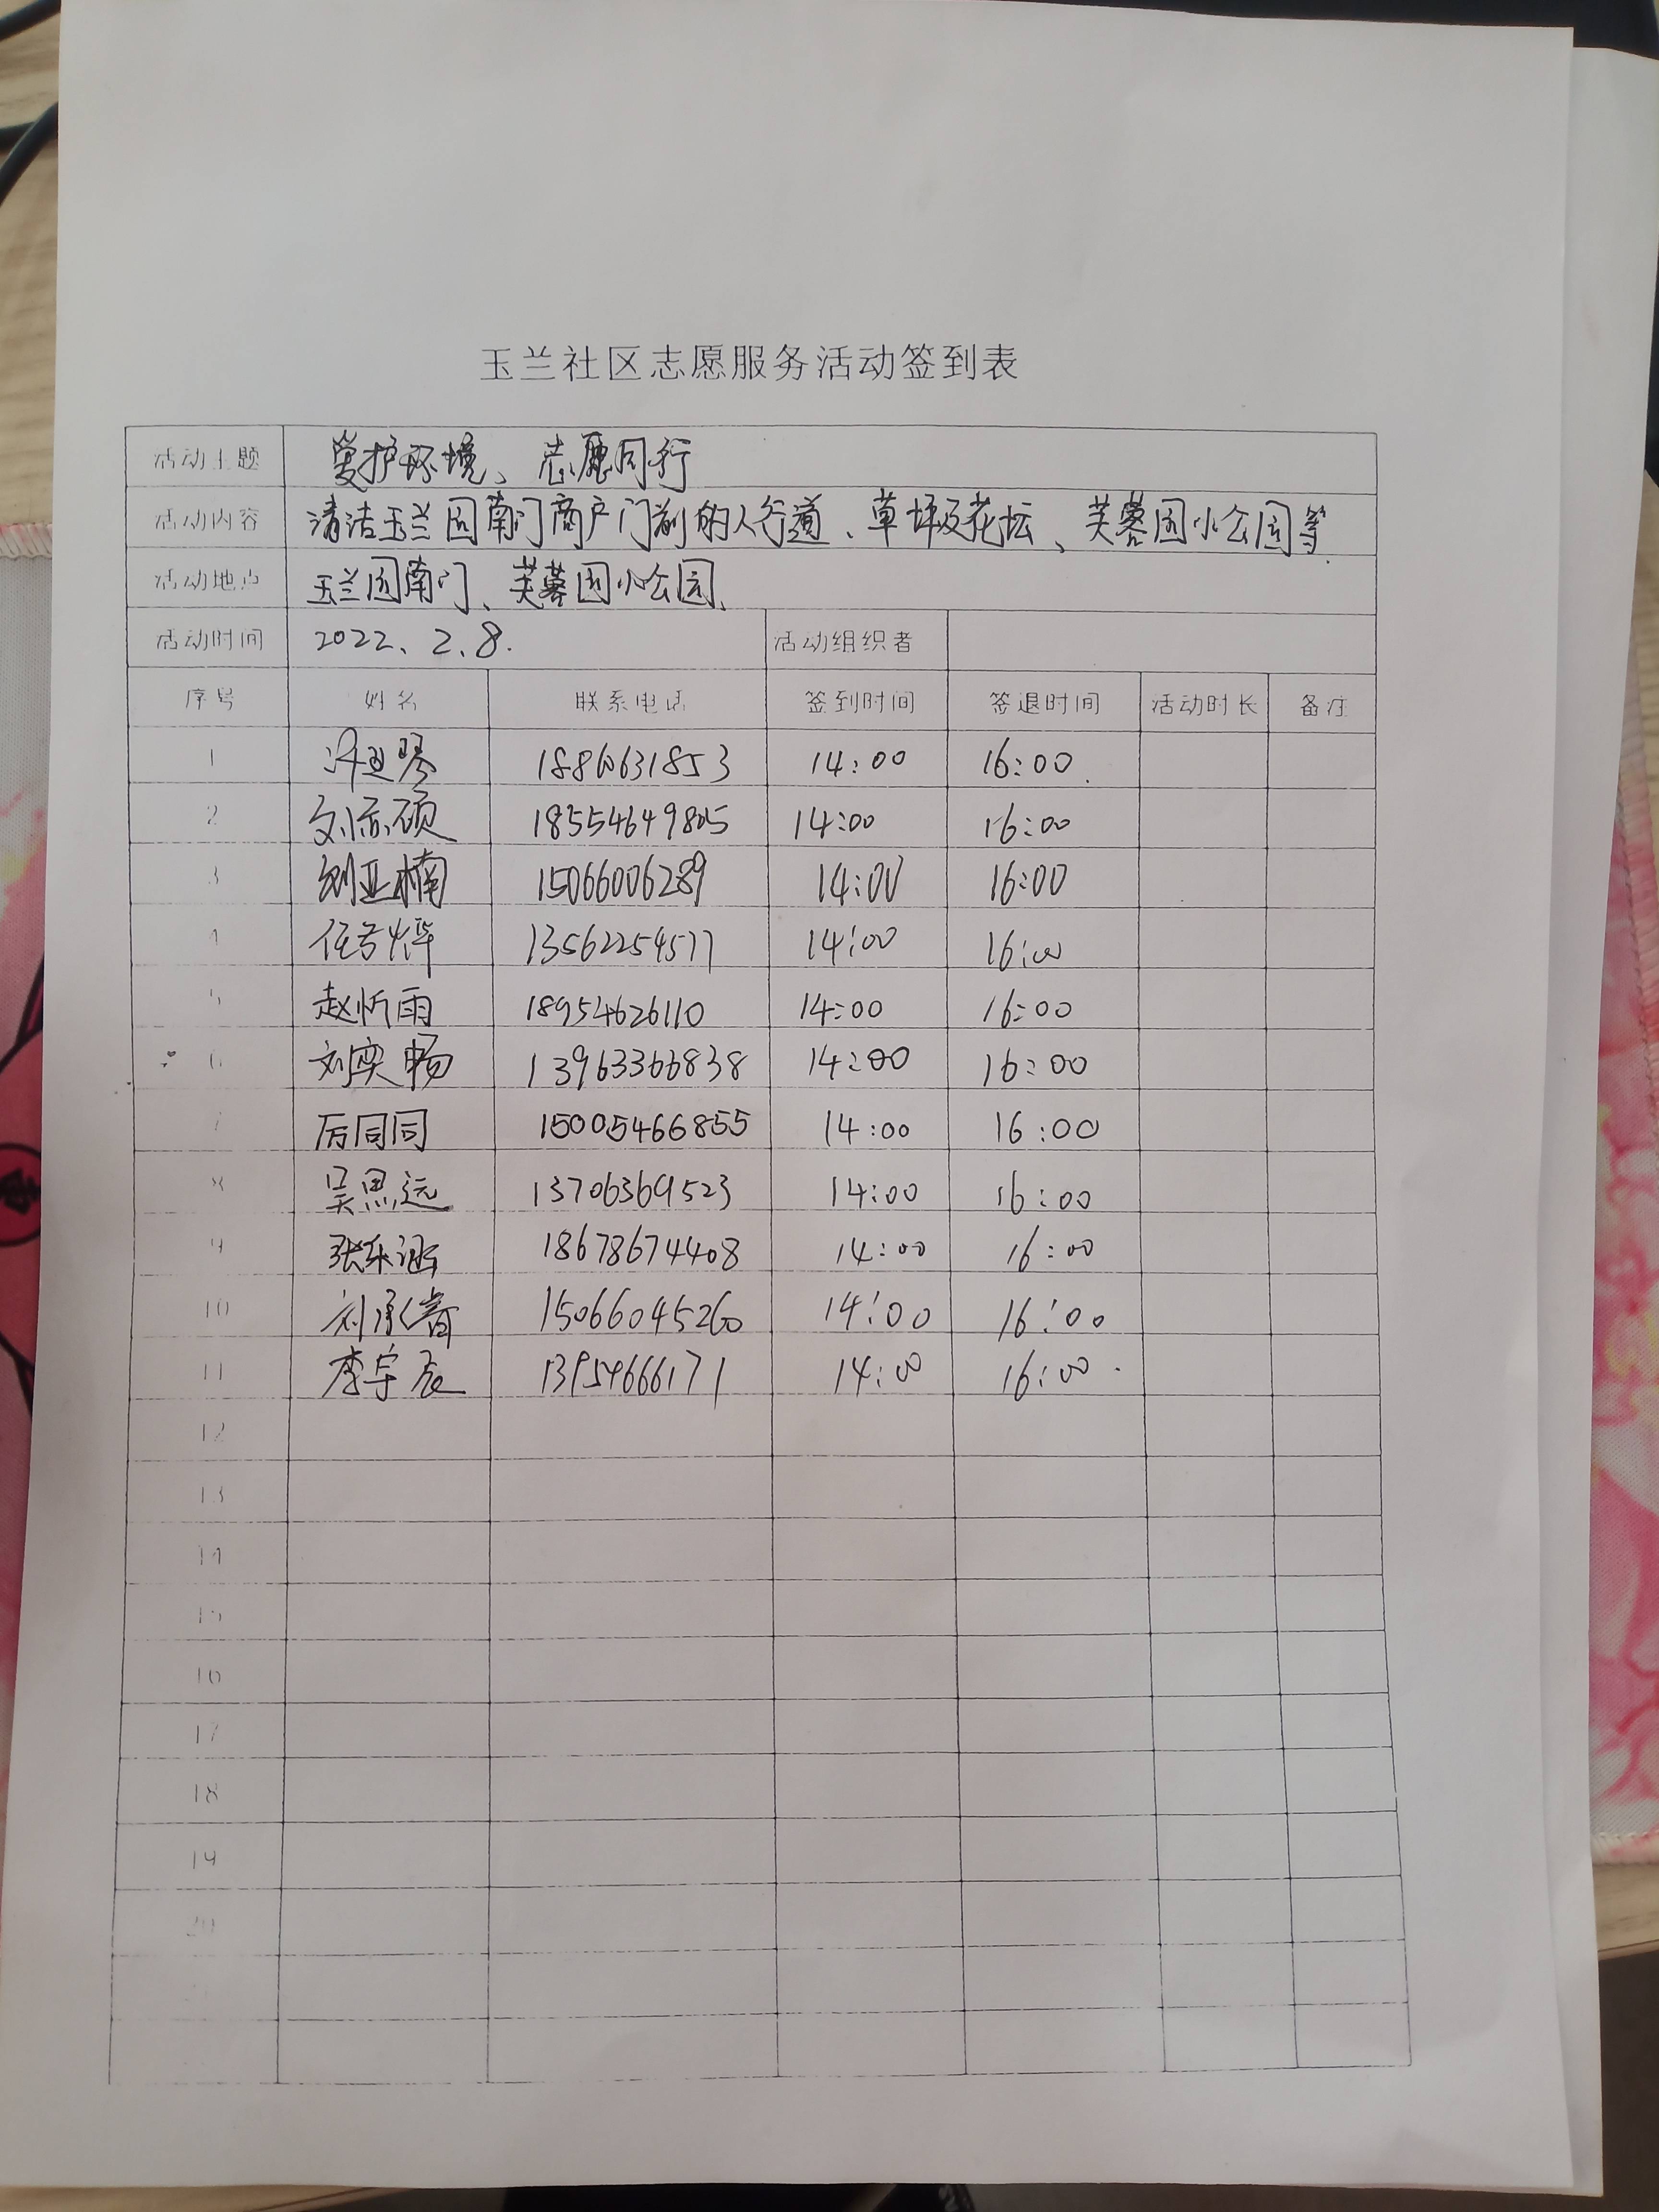 玉兰社区志愿服务活动签到表
活动主题 爱护环境、志愿同行
活动内容 清洁玉兰园南门商户门前的人行道、草坪及花坛、芙蓉园小公园等
活动地点 玉兰园南门、芙蓉园小公园、
活动时间 2022、2、8. 活动组织者
序号 姓名 联系电话 签到时间 签退时间 活动时长 备注
1 14:00 16:00
2 刘亦硕 18554649805 14:00 16:00
3 刘亚楠 15066006289 14:00 16:00
4 13562254577 14:00 16:00
5 赵忻雨 18954626110 14:00 16:00
6 刘奕畅 13963366838 14:00 16:00
7 厉同同 15005466855 14:00 16:00
8 吴思远 13706369523 14:00 16:00
9 张乐涵 18678674408 14:00 16:00
10 15066045260 14:00 16:00
11 李宇辰 13954666171 14:00 16:00
12
13
14
15
16
17
18
19
20